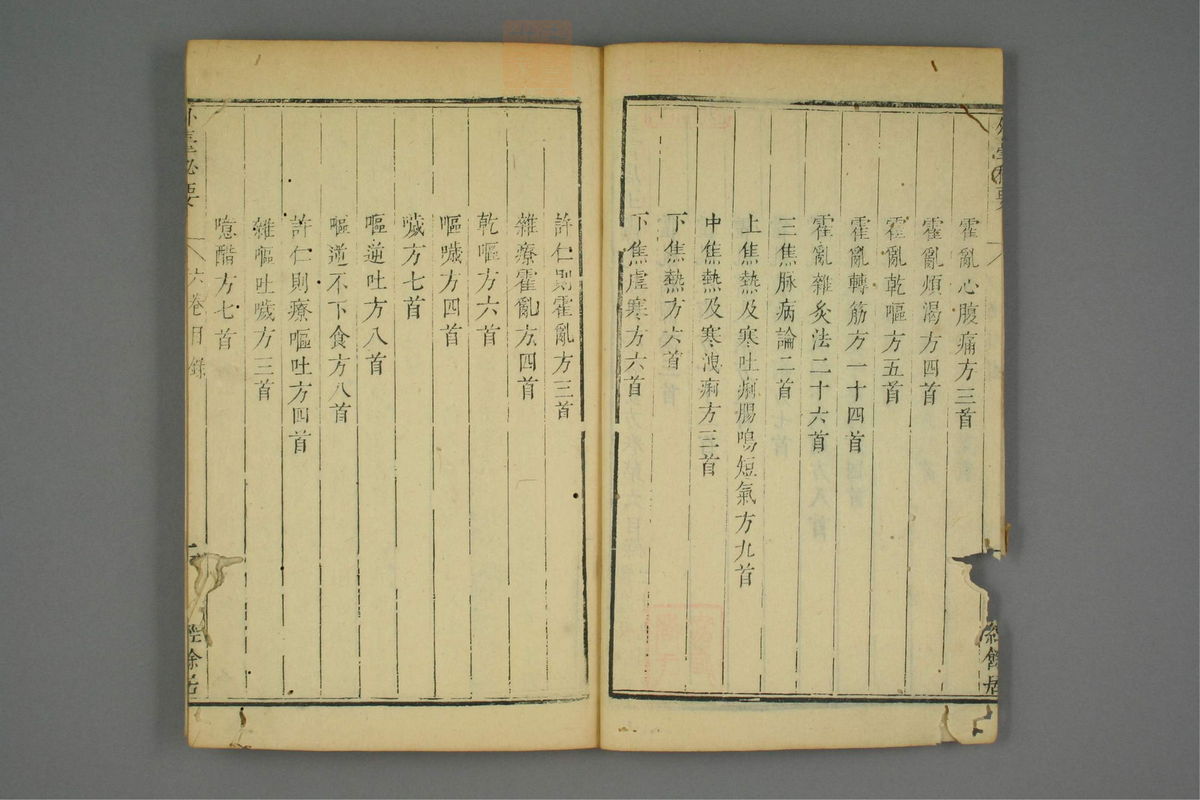 霍亂心腹痛方三首
霍亂煩渴方四首
霍亂乾嘔方五首
霍亂轉筋方一十四首
霍亂雜灸法二十六首
三焦脉病論二首
上焦熱及寒吐痢腸鳴短氣方九首
中焦熱及寒洩痢方三首
下焦熱方六首
下焦虛寒方六首
許仁則霍亂方三首
雜療霍亂方四首
乾嘔方六首
嘔噦方四首
噦方七首
嘔逆吐方八首
嘔逆不下食方八首
許仁則療嘔吐方四首
雜嘔吐噦方三首
噫醋方七首
外臺秘要
六卷目錄
經餘居